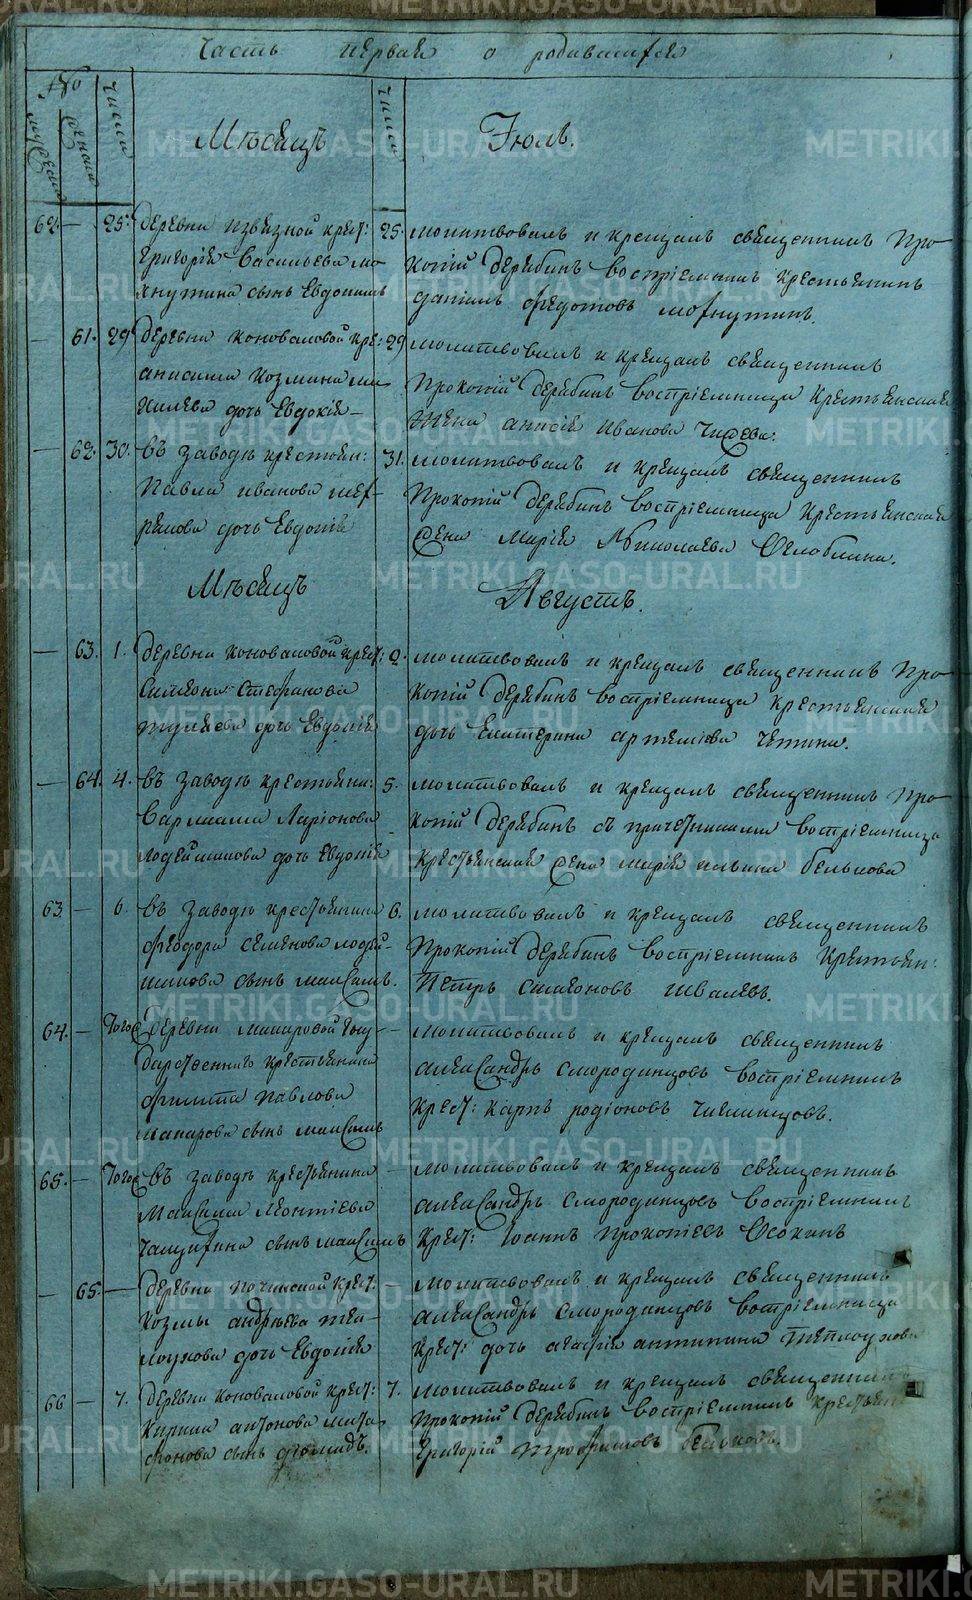 Часть первая о родившихся
№
мужеска
женска
числа
числа
Мѣсяцъ
Іюль.
62. — 25. деревни Извѣзной крест:
Григорія Васильева Ма
хнутина сынъ Евдокимъ
25. молитвовалъ и крещалъ священникъ Про
копій Дерябинъ воспріемникъ крестьянинъ
Даніилъ Федотовъ Махнутинъ.
— 61. 29 деревни Коноваловой кре:
Анисима Козмина Ми
хилева дочь Евдокія —
29 молитвовалъ и крещалъ священникъ
Прокопій Дерябинъ воспріемница крестьянская
жена Анисія Иванова
— 62. 30. въ заводѣ крестьян:
Павла Иванова
дочь Евдокія
31. молитвовалъ и крещалъ священникъ
Прокопій Дерябинъ воспріемница крестьянская
жена Марія Николаева Оглоблина.
Мѣсяцъ
Августъ.
— 63. 1. деревни Коноваловой крест:
Симеона Стефанова
дочь Евдокія
2. молитвовалъ и крещалъ священникъ Про
копій Дерябинъ воспріемница крестьянская
дочь Екатерина Артеміева
— 64. 4. въ заводѣ крестьяни:
Варлаама Ларіонова
Лодейщикова дочь Евдокія
5. молитвовалъ и крещалъ священникъ Про
копій Дерябинъ съ причетниками воспріемница
крестьянская жена Марія Ильина Белькова
63 — 6. въ заводѣ крестьянина
Феодора Семенова Лодей
щикова сынъ Максимъ.
6. молитвовалъ и крещалъ священникъ
Прокопій Дерябинъ воспріемникъ крестьян:
Петръ Симеоновъ Швалевъ.
64. — Тогож деревни Макаровой госу
дарственнаго крестьянина
Филиппа Павлова
Макарова сынъ Максимъ
— молитвовалъ и крещалъ священникъ
Александръ Смородинцовъ воспріемникъ
крест: Карпъ Родіоновъ
65. — Тогож въ заводѣ крестьянина
Максима Леонтіева
сынъ Максимъ
— молитвовалъ и крещалъ священникъ
Александръ Смородинцовъ воспріемникъ
крест: Іоаннъ Прокопіевъ Осокинъ
— 65. — деревни Починской крест:
Козмы Андрѣева Теп
лоухова дочь Евдокія
— молитвовалъ и крещалъ священникъ
Александръ Смородинцовъ воспріемница
крест: дочь Агафія Антипина Теплоухова
66 — 7. деревни Коноваловой крест:
Кирила Антонова Мита
фанова сынъ
7. молитвовалъ и крещалъ священникъ
Прокопій Дерябинъ воспріемникъ крестьян
Григорій Трофимовъ Бельковъ.
METRIKI.GASO-URAL.RU